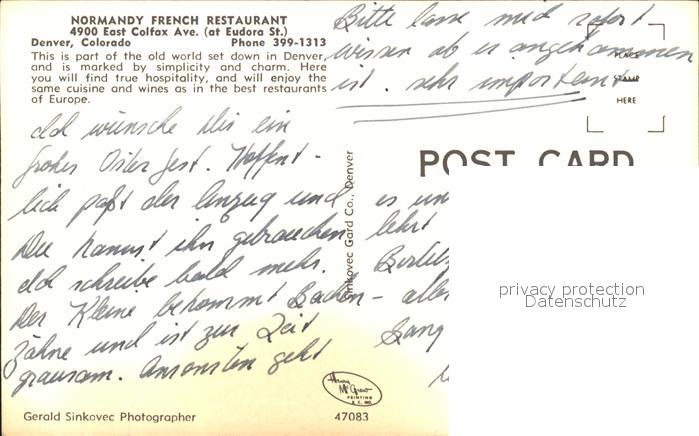 NORMANDY FRENCH RESTAURANT
4900 East Colfax Ave. (at Eudora St.)
Denver, Colorado Phone 399-1313
This is part of the old world set down in Denver,
and is marked by simplicity and charm. Here
you will find true hospitality, and will enjoy the
same cuisine and wines as in the best restaurants
of Europe.
Bitte lasse mich sofort
wissen ob er angekommen
ist. sehr important
PLACE
STAMP
HERE
POST CARD
Ich wünsche Dir ein
frohes Oster fest. Hoffent-
lich paßt der Anzug und
Du kannst ihn gebrauchen
Ich schreibe bald mehr.
Der Kleine bekommt Backen-
zähne und ist zur Zeit
grausam. Ansonsten geht
es
lehrt
alles
Sinkovec Card Co., Denver
privacy protection
Datenschutz
Henry McGrew
PRINTING
K. C. MO.
Gerald Sinkovec Photographer 47083